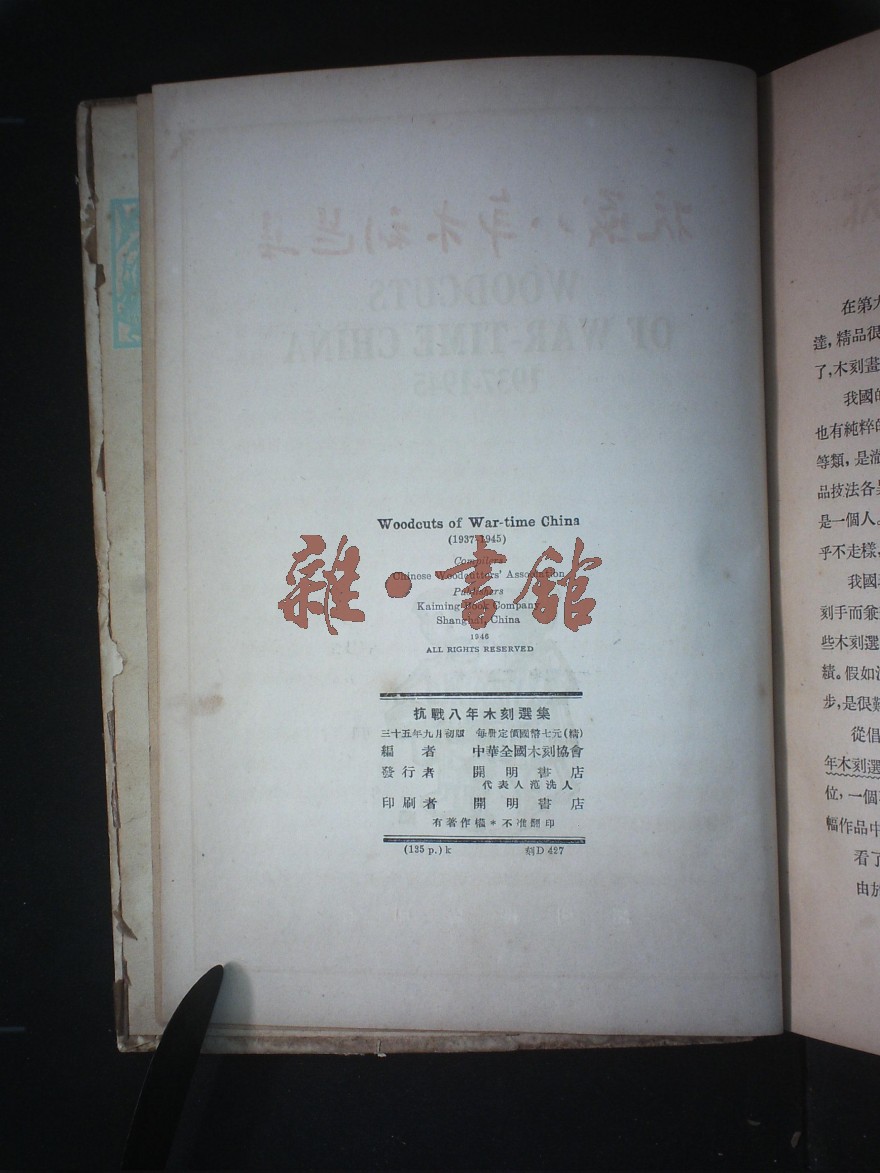 抗戰八年木刻選集
WOODCUTS
OF WAR-TIME CHINA
1937-1945
Woodcuts of War-time China
(1937-1945)
Compilers
Chinese Woodcutters' Association
Publishers
Kaiming Book Company
Shanghai, China
1946
ALL RIGHTS RESERVED
雜·書館
抗戰八年木刻選集
三十五年九月初版 每冊定價國幣七元(精)
編者 中華全國木刻協會
發行者 開明書店
代表人范洗人
印刷者 開明書店
有著作權*不准翻印
(135 p.) k 刻D 427
在第
達,精品很
了,木刻畫
我國的
也有純粹的
等類,是
品技法各
是一個人。
乎不走樣,
我國
刻手而兼
些木刻選
績。假如
步,是很
從倡
年木刻選
位,一個
幅作品中
看了
由於